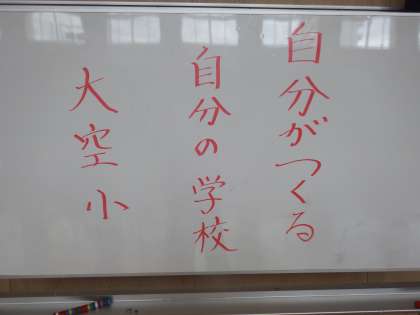 自分がつくる
自分の学校
大空小